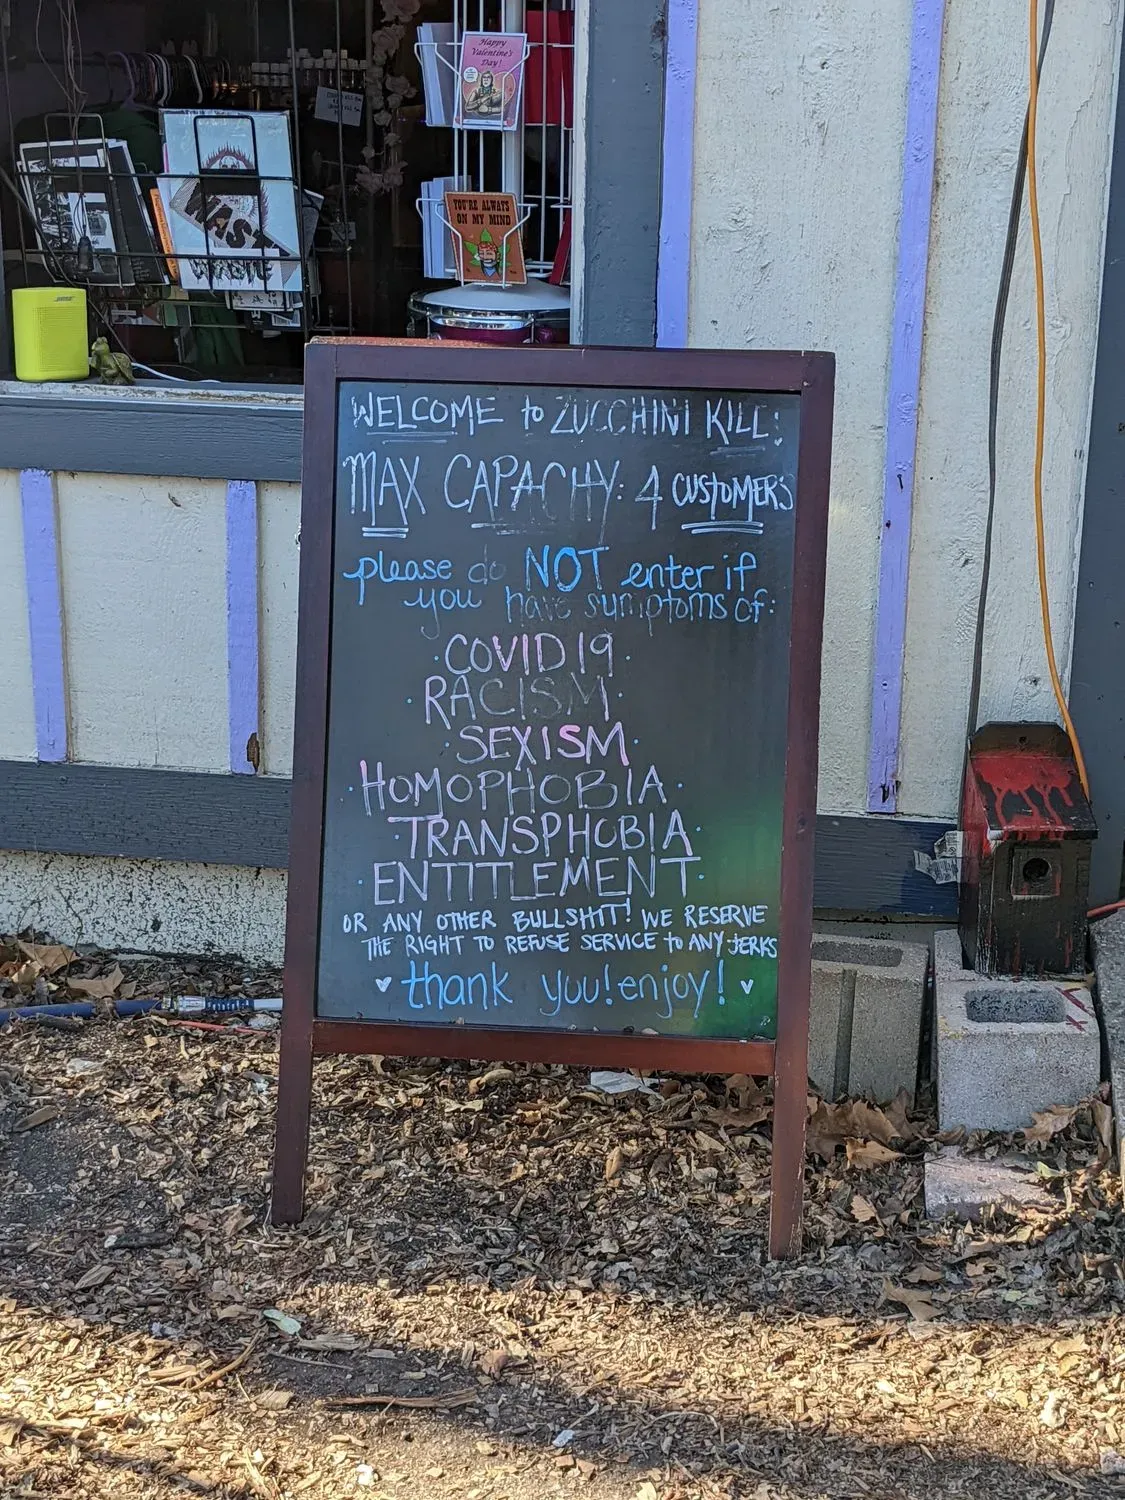 Happy
Valentine's
Day!
YOU'RE ALWAYS
ON MY MIND
BOSE
WELCOME to ZUCCHINI KILL:
MAX CAPACHY: 4 CUSTOMER'S
please do NOT enter if
you have sumptoms of:
COVID19
RACISM
SEXISM
HOMOPHOBIA
TRANSPHOBIA
ENTITLEMENT
OR ANY OTHER BULLSHIT! WE RESERVE
THE RIGHT TO REFUSE SERVICE to ANY JERKS
thank you! enjoy!